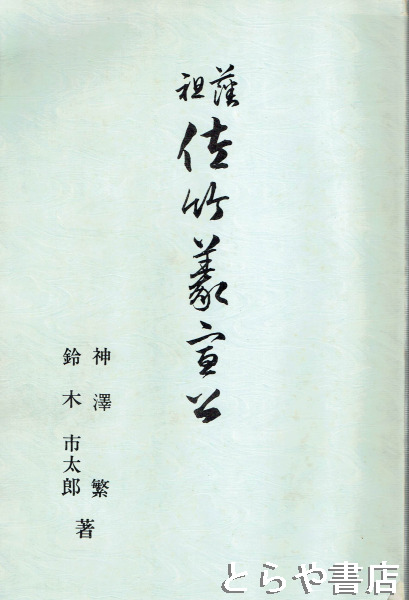 藩祖
佐竹義宣公
神澤繁
鈴木市太郎
著
とらや書店